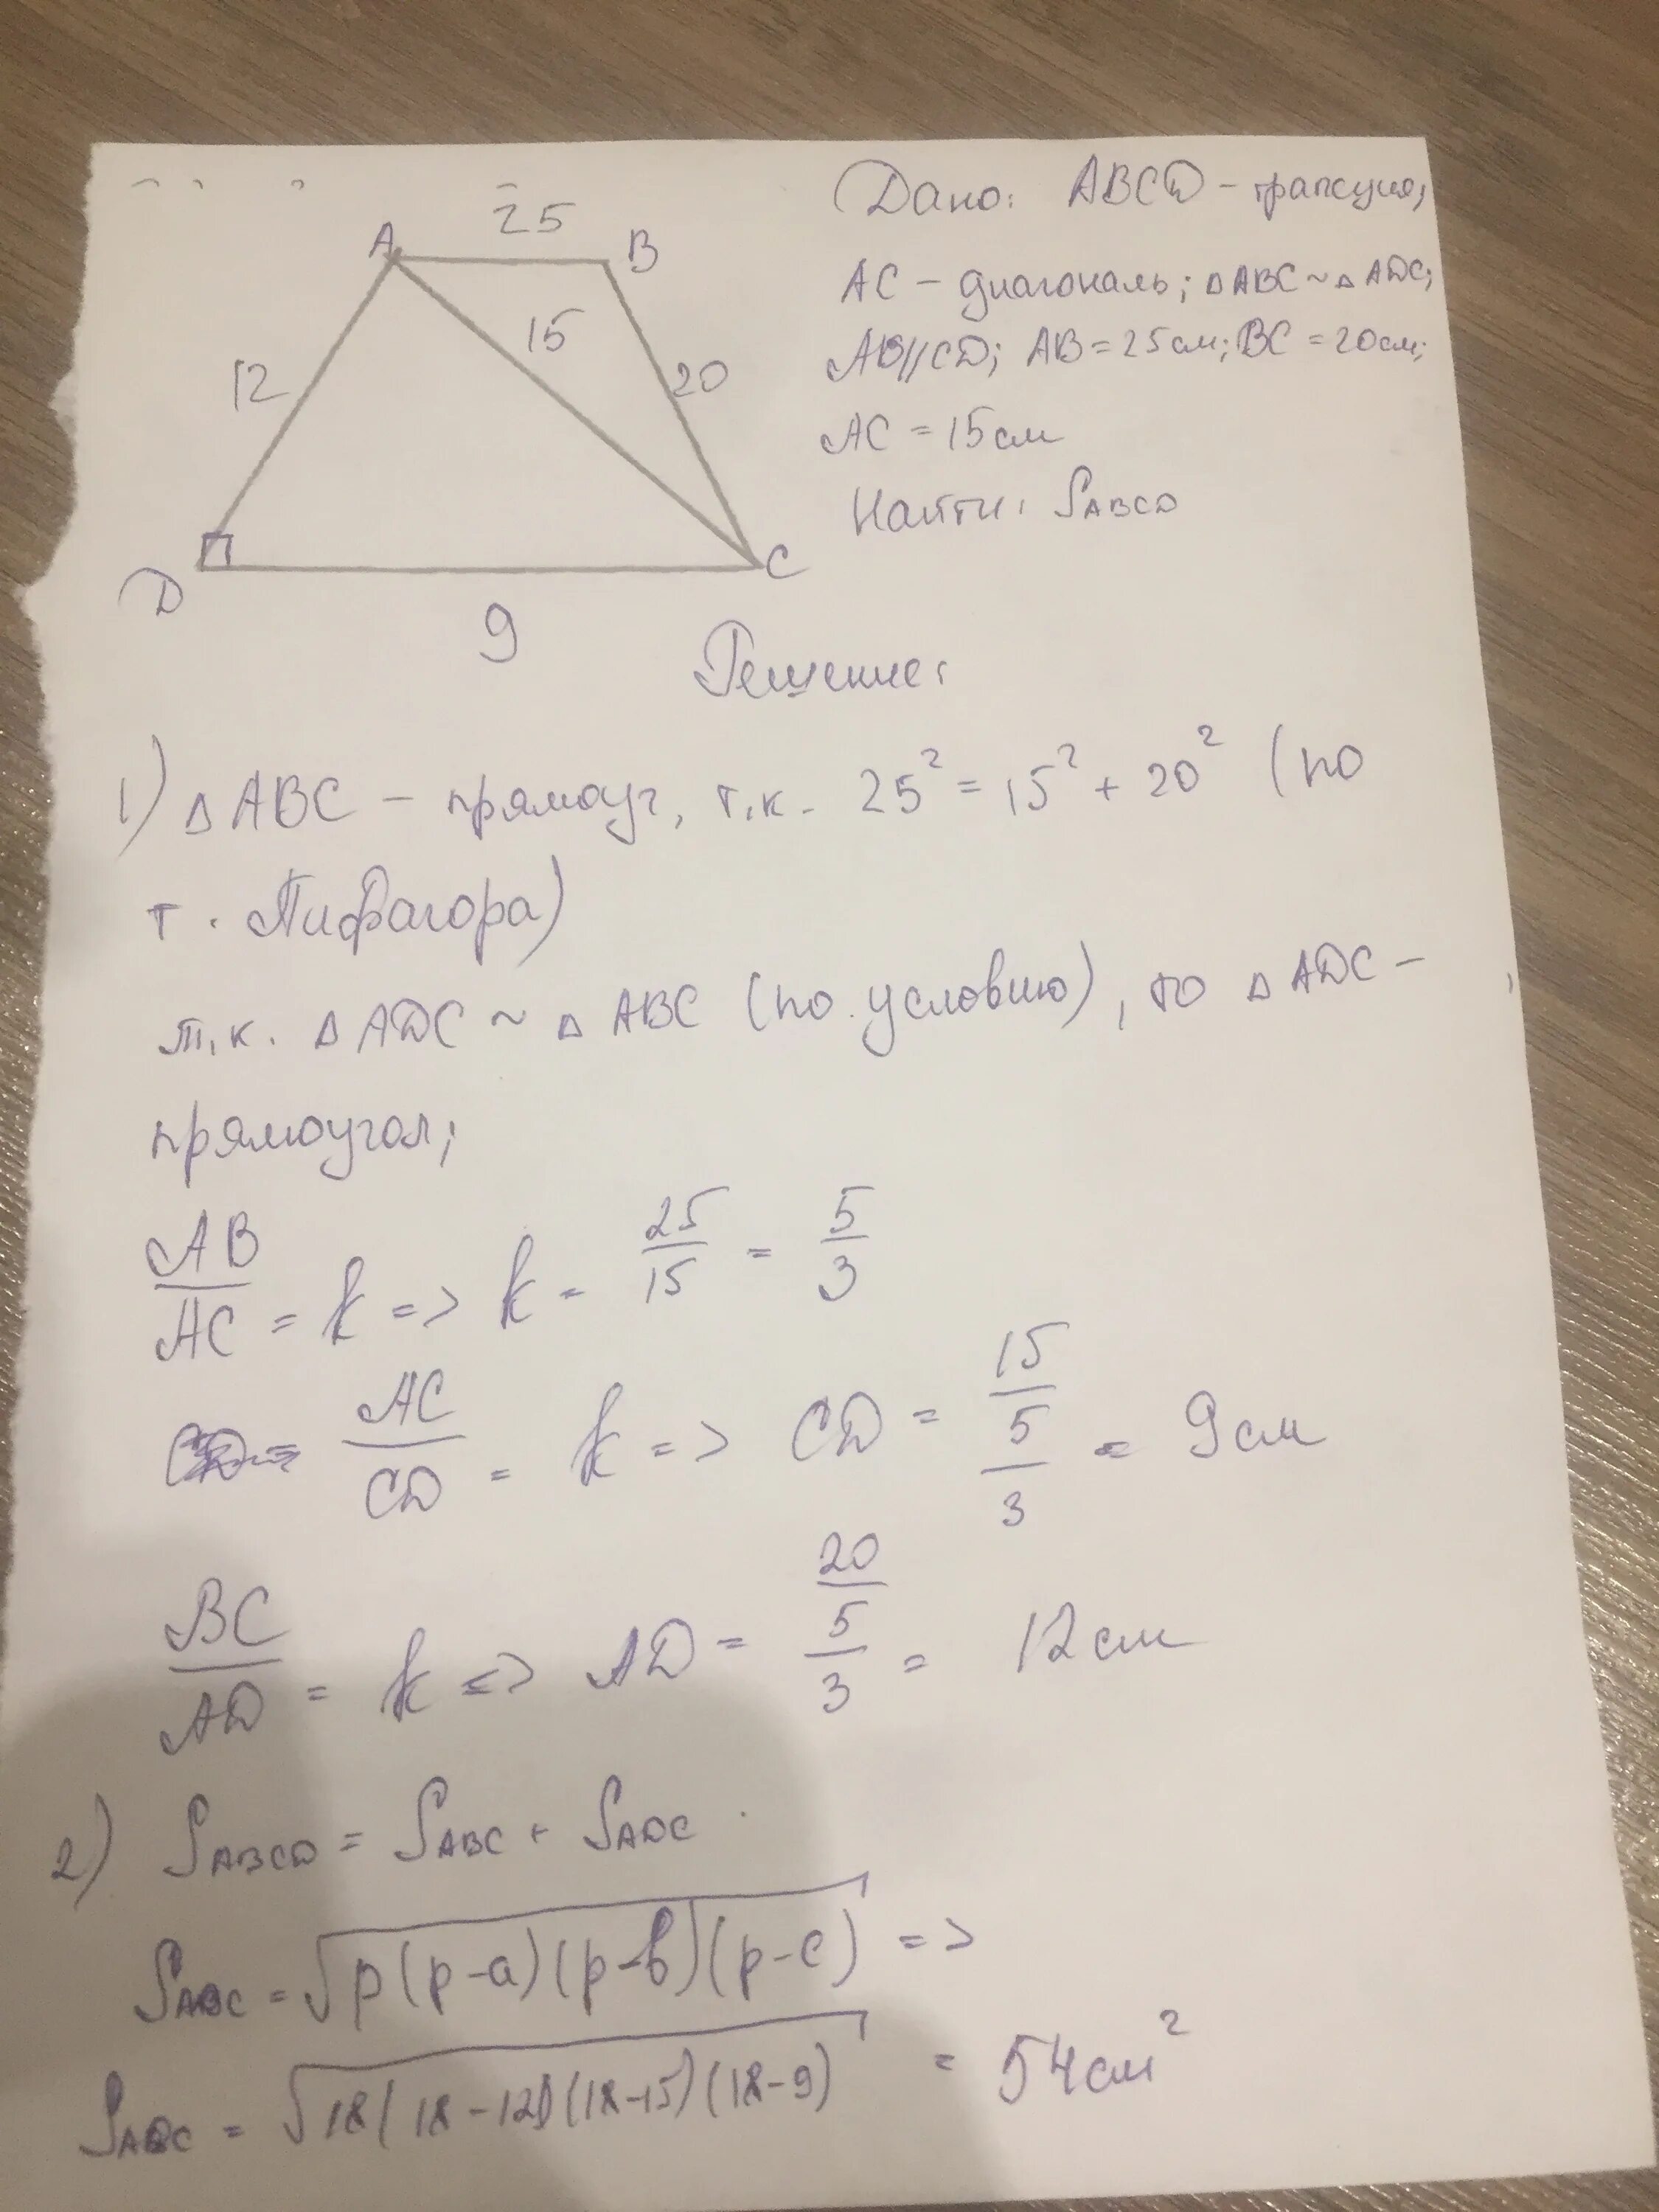 25
A
B
12
15
20
D
C
9
Дано: ABCD – трапеция;
AC – диагональ; △ABC ~ △ADC;
AB//CD; AB = 25см; BC = 20см;
AC = 15см
Найти: SABCD
Решение:
1) △ABC – прямоуг, т.к. 25² = 15² + 20² (по
т. Пифагора)
т.к. △ADC ~ △ABC (по условию), то △ADC –
прямоугол;
AB/AC = k => k = 25/15 = 5/3
AC/CD = k => CD = 15/(5/3) = 9см
BC/AD = k => AD = 20/(5/3) = 12см
2) SABCD = SABC + SADC
SABC = √p(p-a)(p-b)(p-c) =>
SADC = √18(18-12)(18-15)(18-9) = 54см²